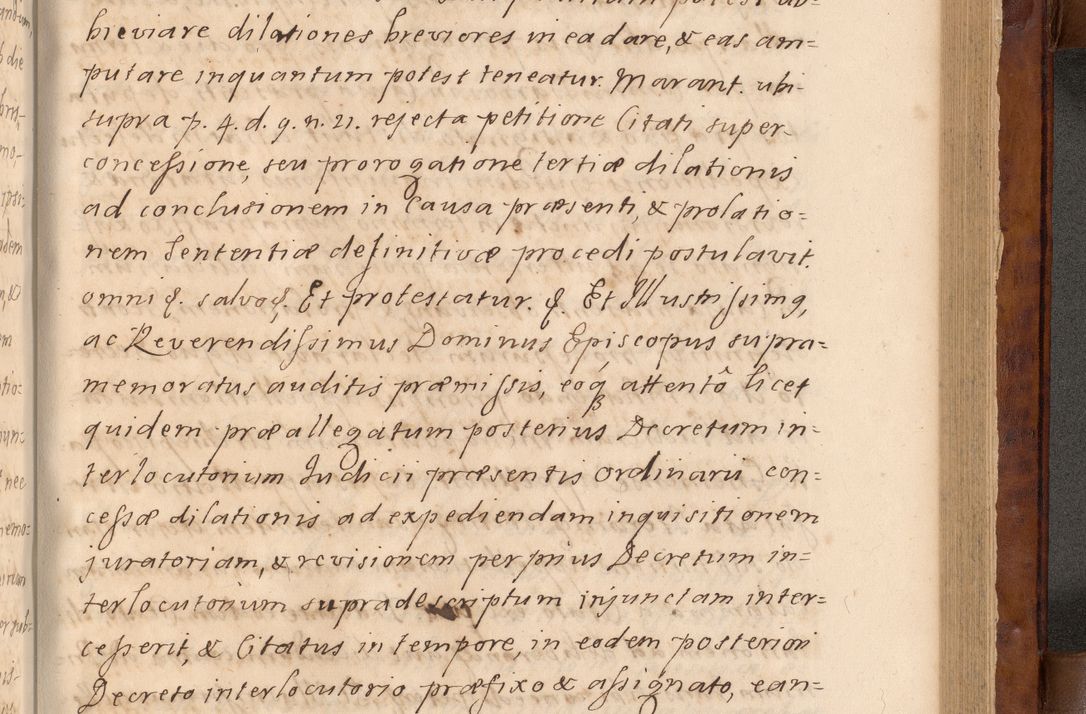 breviare dilationes breviores in ea dare, & eas am=
putare inquantum potest teneatur. Marant. ubi-
supra p. 4. d. 9. n. 21. rejecta petitione Citati super-
concessione, seu prorogatione tertiæ dilationis
ad conclusionem in Causa præsenti, & prolatio=
nem Sententiæ definitivæ procedi postulavit.
omni q. salvoq. Et protestatur. q. Et Illustrissimq,
ac Reverendissimus Dominus Episcopus supra=
memoratus auditis præmissis, eoq́ attentô licet
quidem præallegatum posterius Decretum in=
terlocutorium Judicii præsentis ordinarii con=
cessæ dilationis ad expediendam inquisitionem
juratoriam, & revisionem per prius Decretum in=
terlocutorium supradescriptum injunctam inter=
cesserit, & Citatus in tempore, in eodem posteriori
Decreto interlocutorio præfixo & assignato, ean=